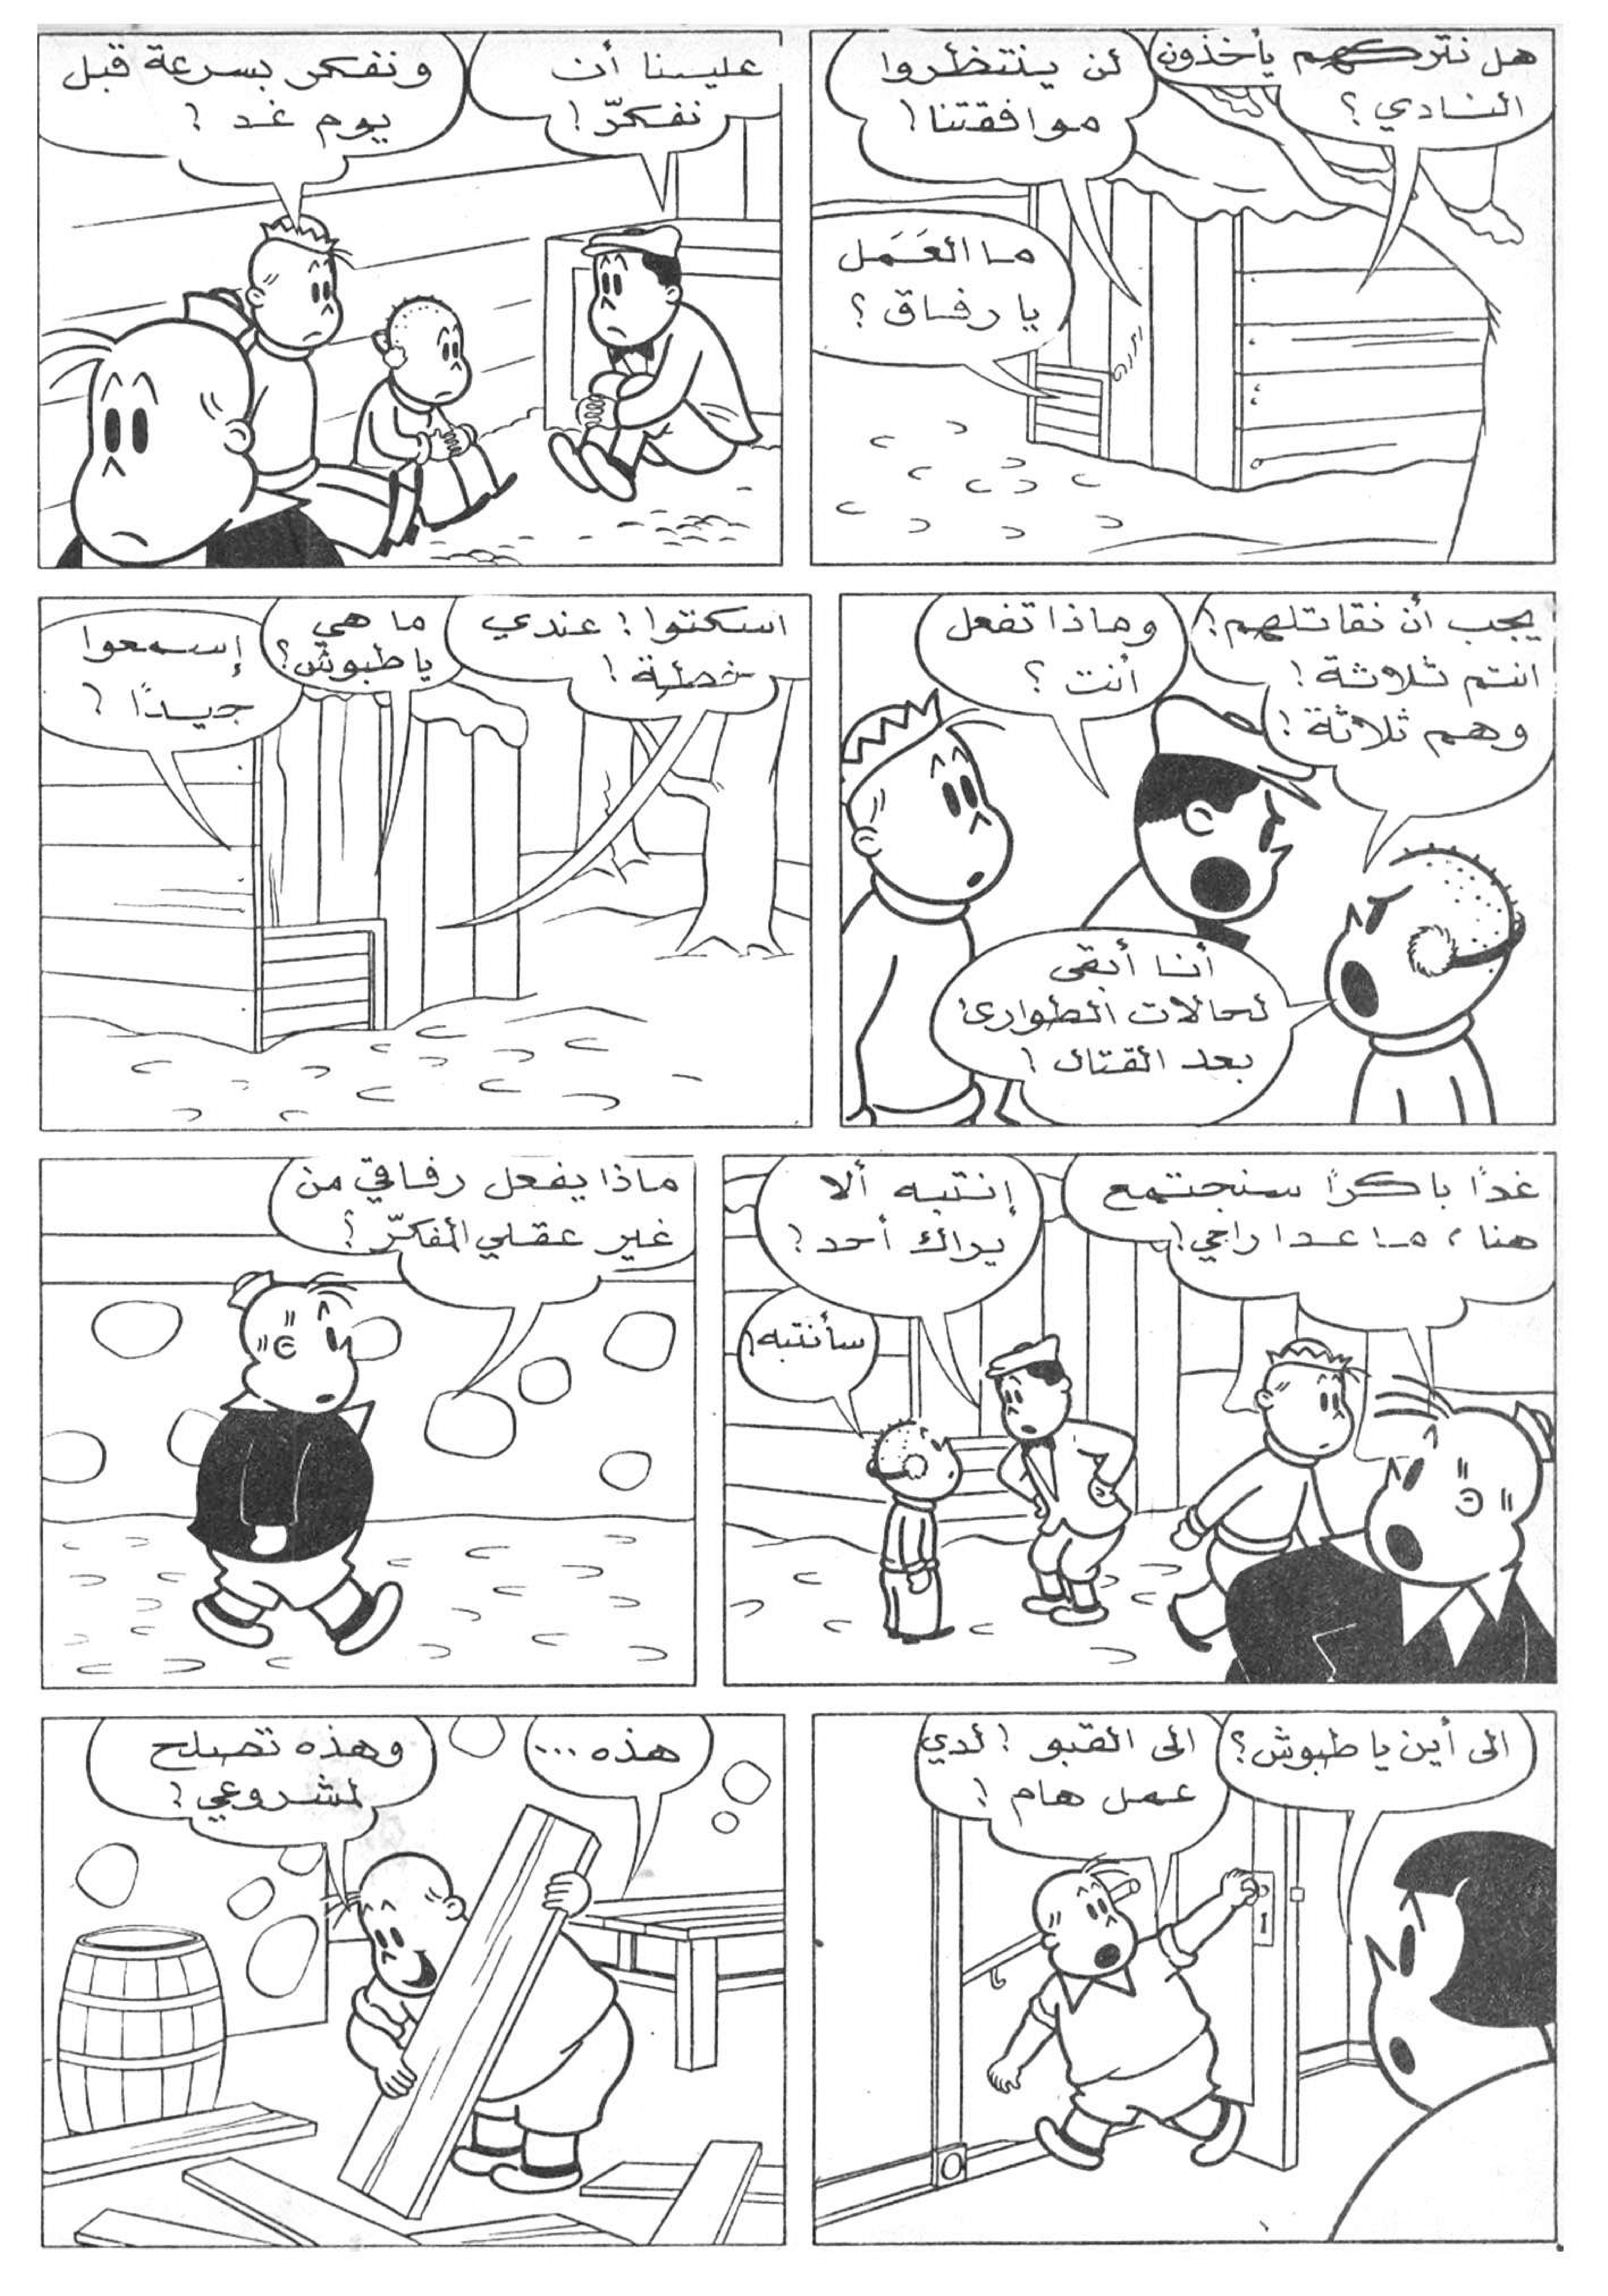 هل نتركهم يأخذون
النادي؟
لن ينتظروا
موافقتنا!
ما العَمَل
يا رفاق؟
علينا أن
نفكّر!
ونفكر بسرعة قبل
يوم غد!
يجب أن نقاتلهم!
انتم ثلاثة!
وهم ثلاثة!
وماذا تفعل
أنت؟
أنا أبقى
لحالات الطوارئ
بعد القتال!
اسكتوا! عندي
خطة!
ما هي
يا طبوش؟
إسمعوا
جيداً!
غداً باكراً سنجتمع
هنا، ما عدا راجي!
إنتبه ألا
يراك أحد!
سأنتبه!
ماذا يفعل رفاقي من
غير عقلي المفكّر؟
الى أين يا طبوش؟
الى القبو! لدي
عمل هام!
هذه...
وهذه تصلح
لمشروعي!